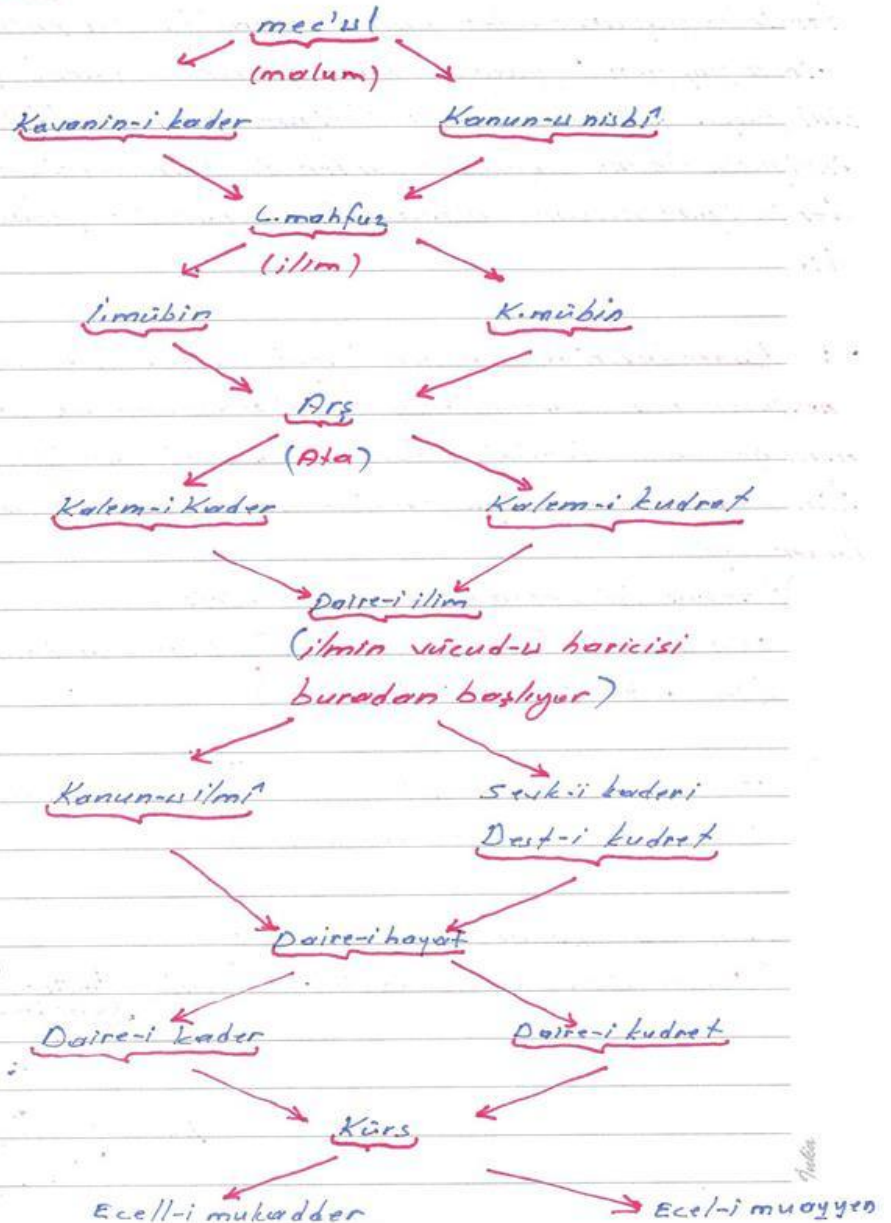 mec'ul
(malum)
Kavanin-i kader Kanun-u nisbî
L.mahfuz
(ilim)
İ.mübin K.mübin
Arş
(Ata)
Kalem-i Kader Kalem-i kudret
Daire-i ilim
(ilmin vücud-u haricisi
buradan başlıyor)
Kanun-u ilmî Sevk-ü kaderi
Dest-i kudret
Daire-i hayat
Daire-i kader Daire-i kudret
Kürs
Ecell-i mukadder Ecel-i muayyen